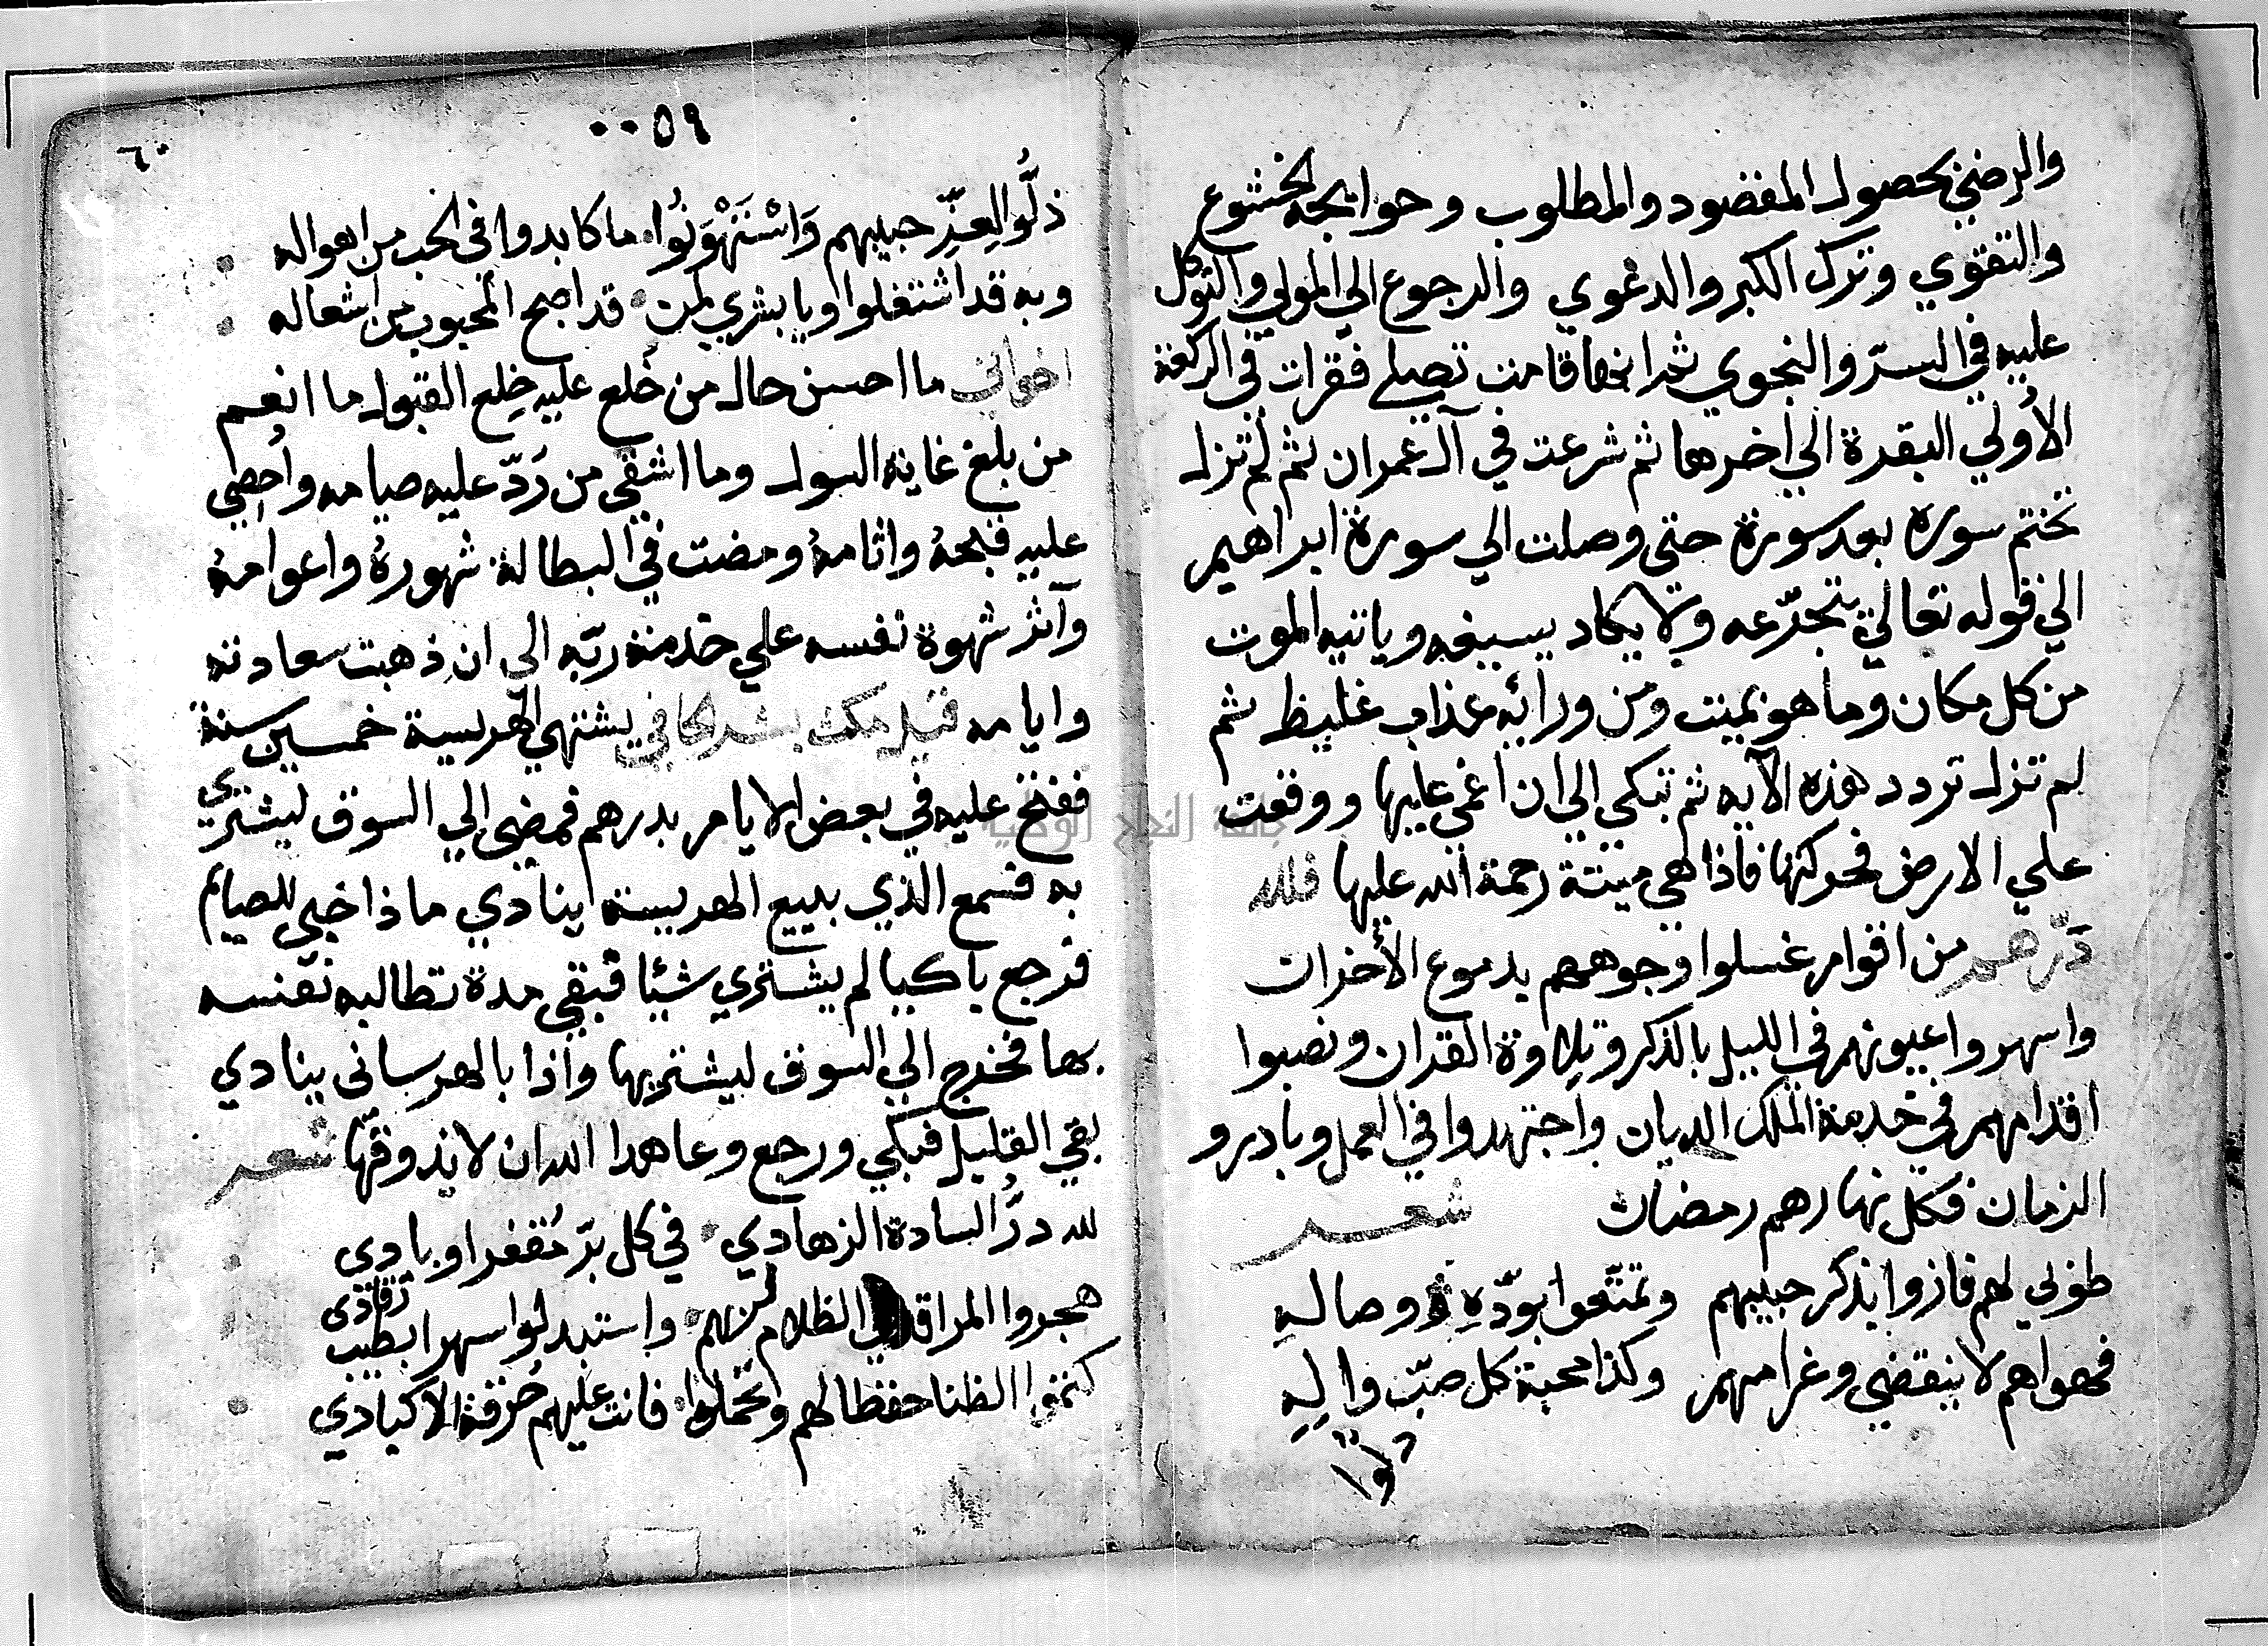 والرضي بحصول المقصود والمطلوب وحوايجه الخشوع
والتقوي وترك الكبر والدعوي والرجوع الي المولي والتوكل
عليه في السرّ والنجوي ثم انها قامت تصلي فقرات في الركعة
الأولي البقرة الي اخرها ثم شرعت في آل عمران ثم لم تزل
تختم سورة بعد سورة حتى وصلت الي سورة ابراهيم
الي قوله تعالي يتجرّعه ولا يكاد يسيغه وياتيه الموت
من كل مكان وما هو بميت ومن ورائه عذاب غليظ ثم
لم تزل تردد هذه الآية ثم تبكي الي ان اغمي عليها ووقعت
علي الارض فحركتها فاذا هي ميتة رحمة الله عليها فلله
درّهم من اقوام غسلوا وجوههم بدموع الأحزان
واسهروا عيونهم في الليل بالذكر وتلاوة القران ونصبوا
اقدامهم في خدمة الملك الديان واجتهدوا في العمل وبادرو
الزمان فكل نهارهم رمضان شعر
طوبي لهم فازوا بذكر حبيبهم وتمتّعوا بودّهِ ووصالهِ
فهواهم لا ينقضي وغرامهم وكذا محبة كل صبّ والِهِ
ذلُّوا لِعِزِّ حبيبهم وَاسْتَهْوَنُوا ما كابدوا في الحب من اهواله
وبه قد اشتغلوا ويا بشري لمن قد اصبح المحبوب من اشغاله
اخواني ما احسن حال من خُلع عليه خِلع القبول ما انعم
من بلغ غاية السول وما اشقي من رُدّ عليه صيامه واُحصي
عليه قبحهُ واثامهُ ومضت في البطالة شهورهُ واعوامهُ
وآثر شهوة نفسه علي خدمة ربّه الي ان ذهبت سعادته
وايامه قيل مكث بشر الحافي يشتهي الهريسة خمسين سنة
ففتح عليه في بعض الايام بدرهم فمضي الي السوق ليشتري
به فسمع الذي يبيع الهريسة ينادي ماذا خبي للصايم
فرجع باكيا لم يشتري شيًا فبقي مدة تطالبه نفسه
بها فخرج الي السوق ليشتريها واذا بالهرساني ينادي
بقي القليل فبكي ورجع وعاهد الله ان لا يذوقها شعر
لله درُّ السادة الزهادي في كل برّ مُقفر او بادي
هجروا المراقد في الظلام لربهم واستبدلوا سهرا بطيب رُقادي
كتموا الظنا حفظا لهم وتحملوا فانت عليهم حُرقة الاكبادي
وبه
٠٠٥٩
٦٠
جامعة النجاح الوطنية